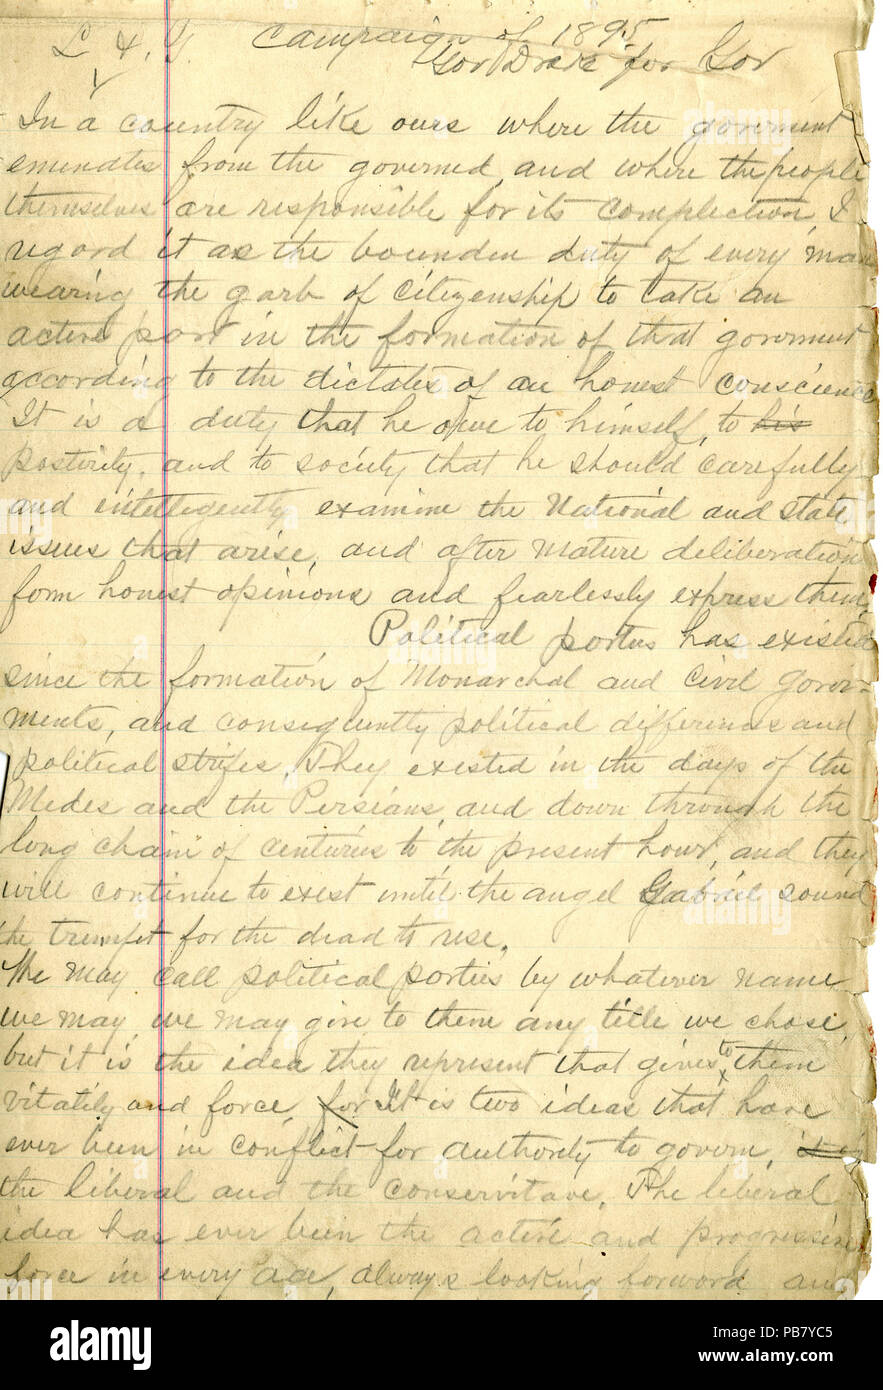 L & G. Campaign of 1895
Gov Drake for Gov
In a country like ours where the goverment
emenates from the governed, and where the people
themselves are responsible for its complection, I
regard it as the bounden duty of every man
wearing the garb of citizenship to take an
active part in the formation of that goverment
according to the dictates of an honest conscience
It is a duty that he owe to himself, to his
posterity, and to society that he should carefully
and intellegently examine the National and state
issues that arise, and after mature deliberation
form honest opinions and fearlessly express them.
Political parties has existed
since the formation of Monarchal and civil gover-
ments, and consequently political differences and
political strifes. They existed in the days of the
Medes and the Persians, and down through the
long chain of centuries to the present hour, and they
will continue to exist until the angel Gabriel sound
the trumpet for the dead to rise.
We may call political parties by whatever name
we may, we may give to them any title we chose,
but it is the idea they represent that gives to them
vitality and force, for It is two ideas that have
ever been in conflict for authority to govern, it is
the liberal and the conservitave. The liberal
idea has ever been the active and progressive
force in every age, always looking forward and
alamy
Image ID: PB7YC5
www.alamy.com